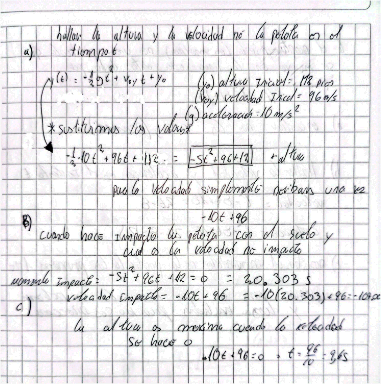 hallar la altura y la velocidad de la pelota en el
a) tiempo t
y(t) = -1/2 g t² + v₀y t + y₀
(y₀) altura Inicial = 112 pies
(v₀y) velocidad Inicial = 96 m/s
(g) aceleracion = 10 m/s²
* sustituimos los valores
-1/2 · 10t² + 96t + 112 = -5t² + 96t + 12 → altura
para la velocidad simplemente una vez
-10t + 96
B) cuando hace impacto la pelota con el suelo y
cual es la velocidad de impacto
momento impacto = -5t² + 96t + 12 = 0 = 20.303 s
velocidad impacto = -10t + 96 = -10(20.303) + 96 =
c)
la altura es maxima cuando la velocidad
se hace 0
-10t + 96 = 0 = t = 96/10 = 9,6s